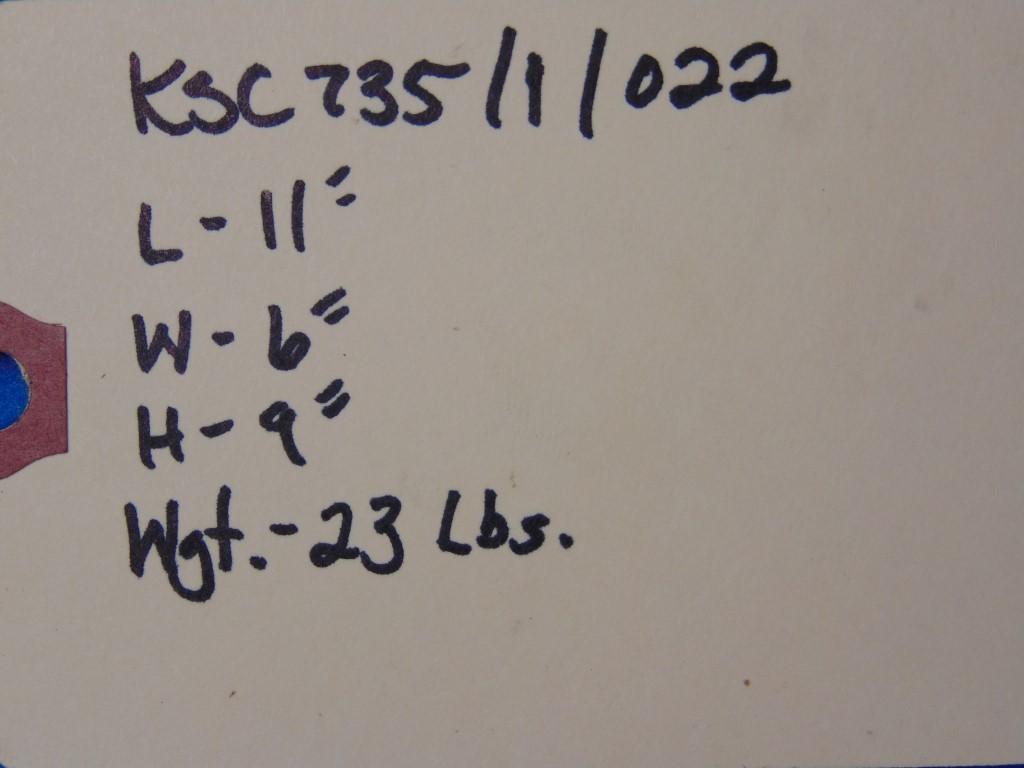 KSC 735/1/022
L - 11"
W - 6"
H - 9"
Wgt. - 23 Lbs.